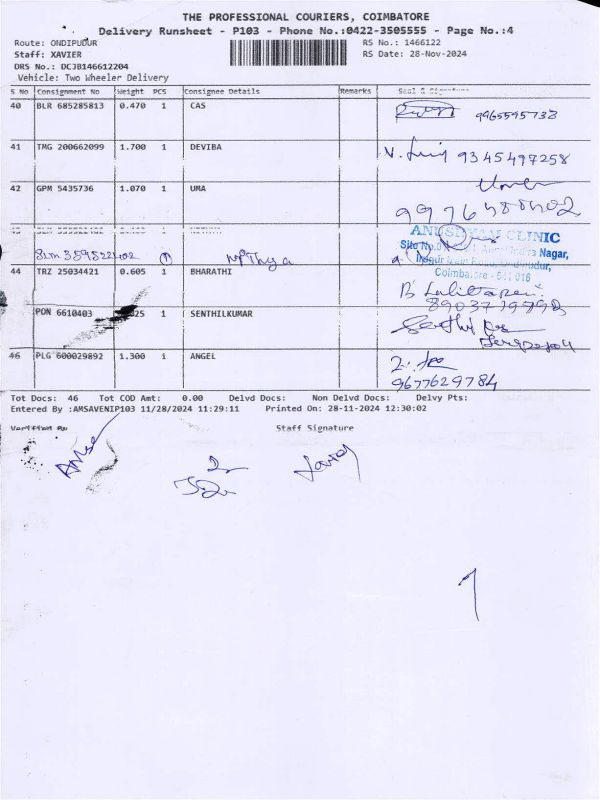 THE PROFESSIONAL COURIERS, COIMBATORE
Delivery Runsheet - P103 - Phone No.:0422-3505555 - Page No.:4
Route: ONDIPUDUR
RS No.: 1466122
Staff: XAVIER
RS Date: 28-Nov-2024
DRS No.: DCJB146612204
Vehicle: Two Wheeler Delivery
S No Consignment No Weight PCS Consignee Details Remarks Seal & Signature
40 BLR 685285813 0.470 1 CAS
9965595738
41 TMG 200662099 1.700 1 DEVIBA
9345497258
42 GPM 5435736 1.070 1 UMA
Uma
ANUSHYAM CLINIC
Site No.
Nagar,
Coimbatore - 641 016
44 TRZ 25034421 0.605 1 BHARATHI
PON 6610403 1 SENTHILKUMAR
46 PLG 600029892 1.300 1 ANGEL
9677629784
Tot Docs: 46 Tot COD Amt: 0.00 Delvd Docs: Non Delvd Docs: Delvy Pts:
Entered By :AMSAVENIP103 11/28/2024 11:29:11 Printed On: 28-11-2024 12:30:02
Verified By Staff Signature